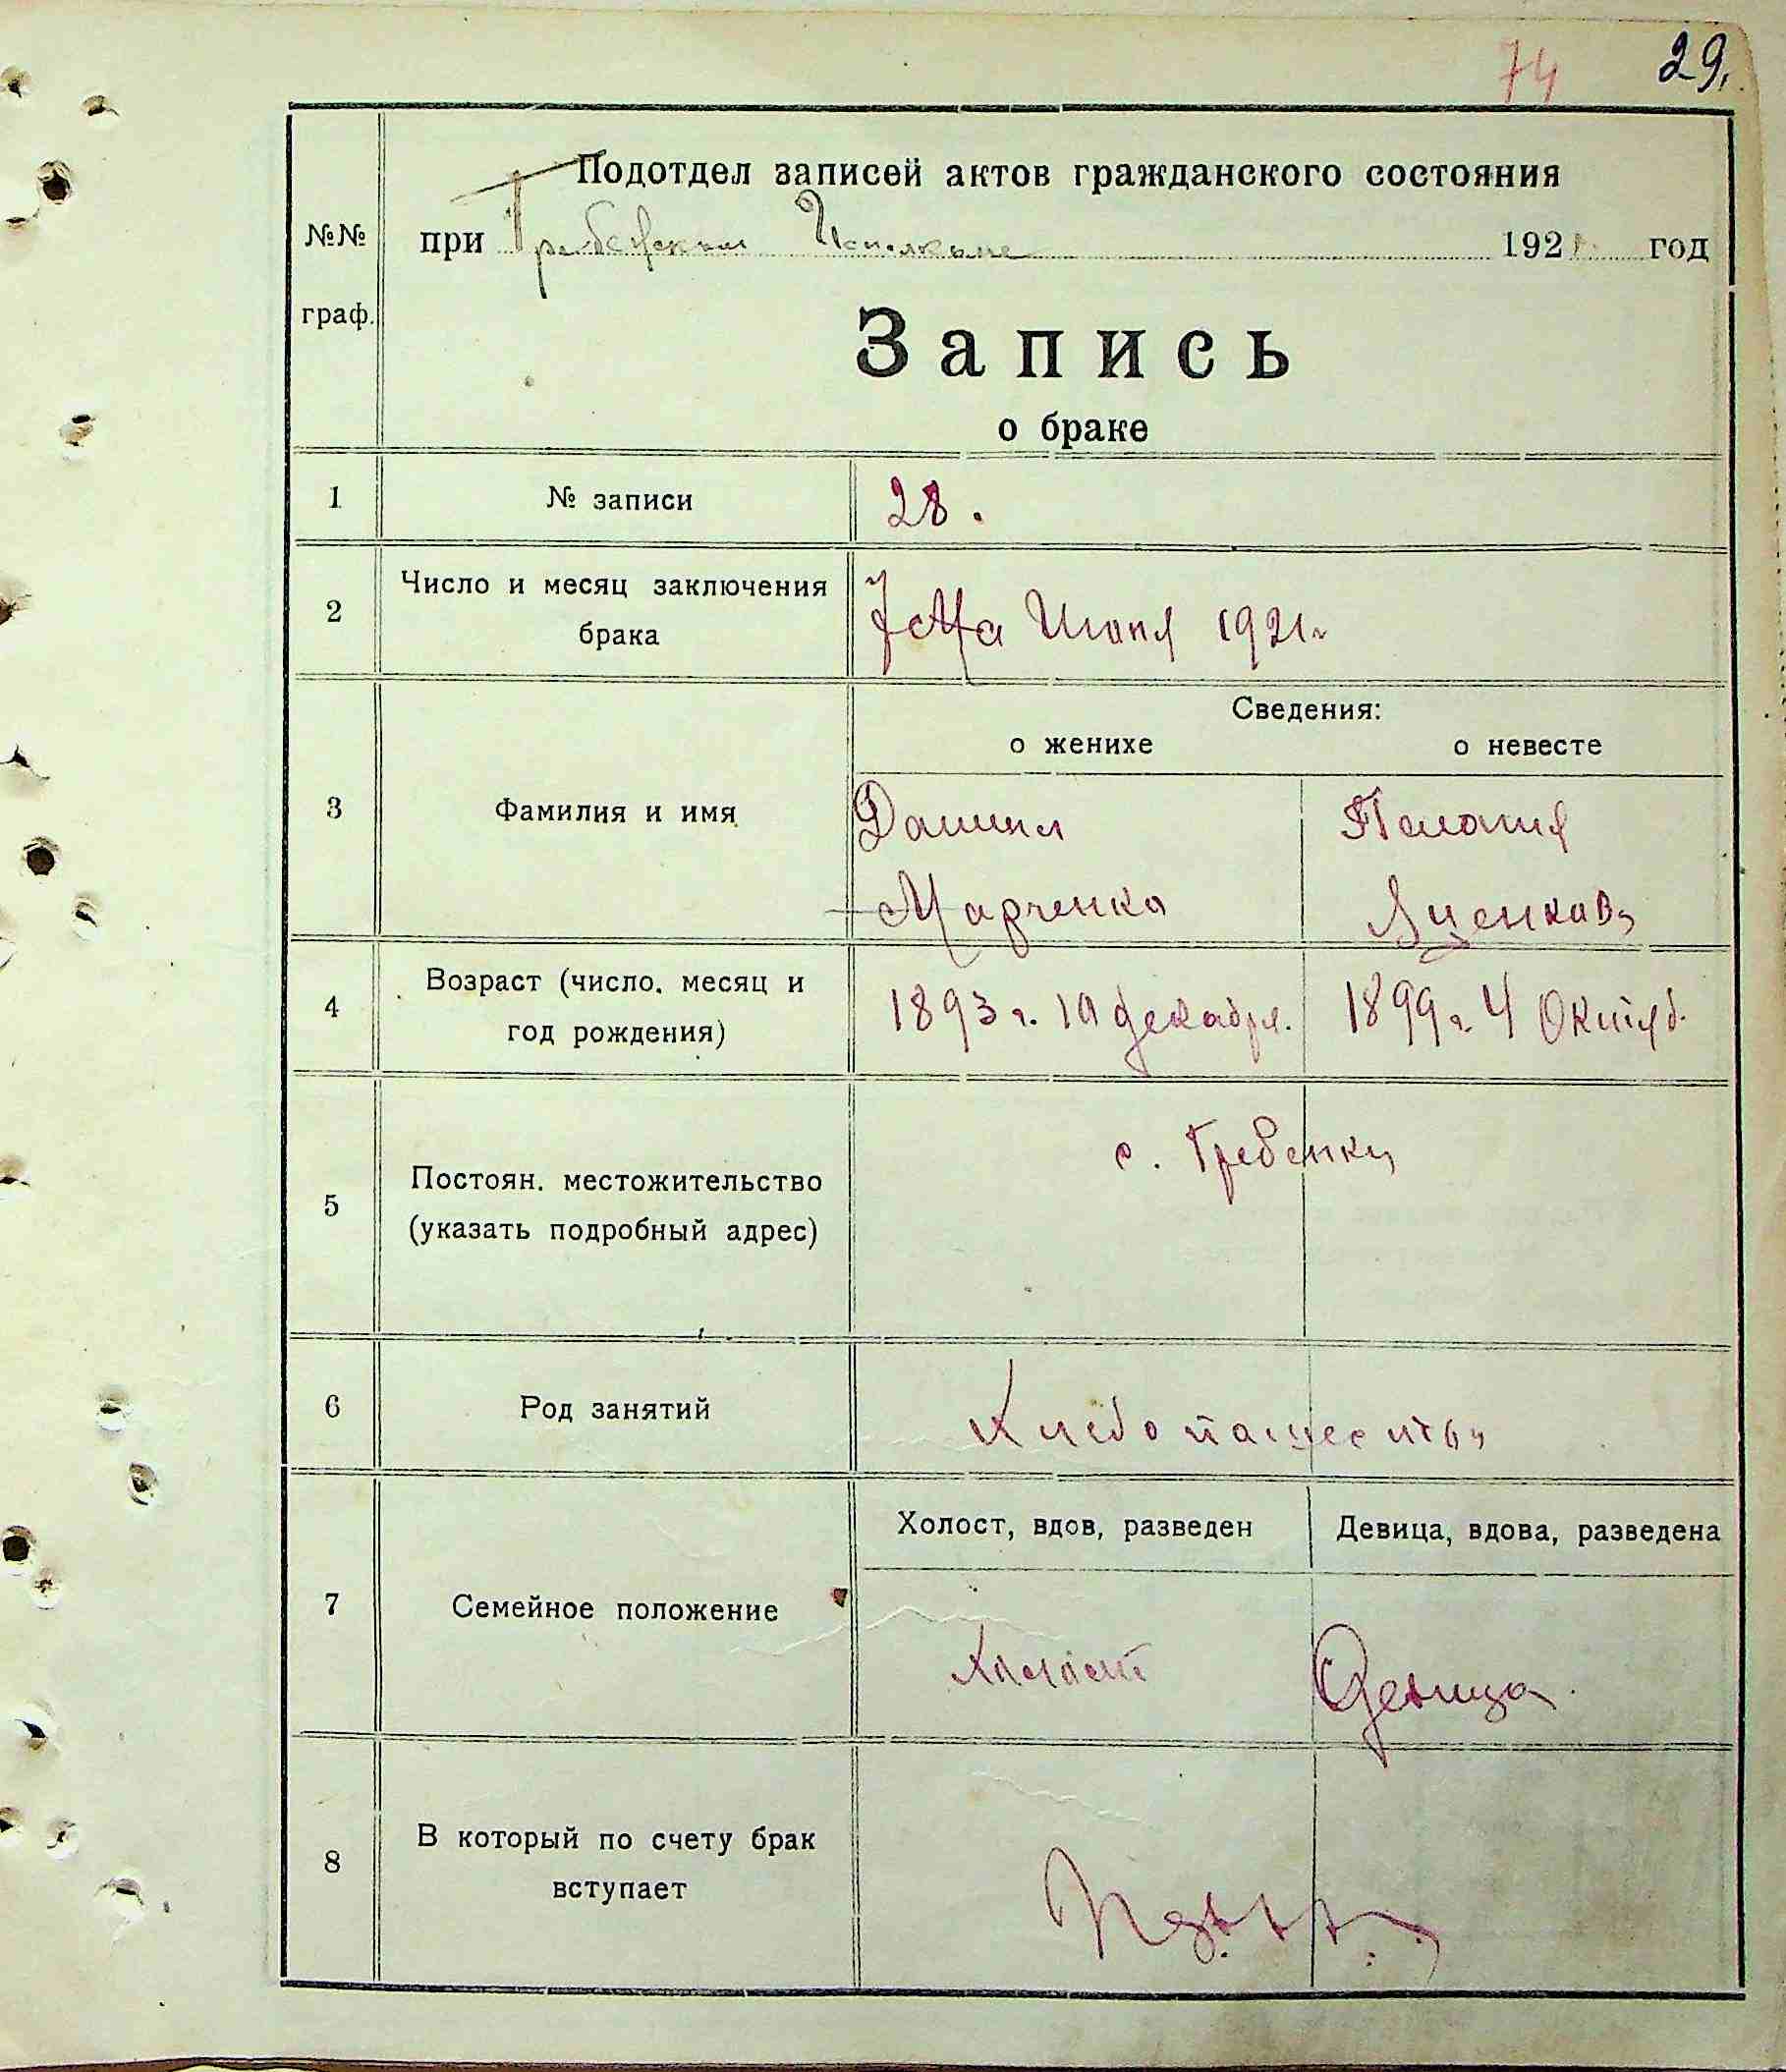 74 29.
Подотдел записей актов гражданского состояния
№№ при Гребенском Исполкоме 1921 год
граф.
Запись
о браке
1 № записи 28.
2 Число и месяц заключения
брака Июня 1921 г
Сведения:
о женихе о невесте
3 Фамилия и имя Даниил Пелагия
Марченко Яценкова
4 Возраст (число, месяц и
год рождения) 1893 г. 10 декабря. 1899 г. 4 Октяб.
5 Постоян. местожительство
(указать подробный адрес) с. Гребенки
6 Род занятий Хлебопашество
Холост, вдов, разведен Девица, вдова, разведена
7 Семейное положение Холост Девица.
8 В который по счету брак
вступает Первый